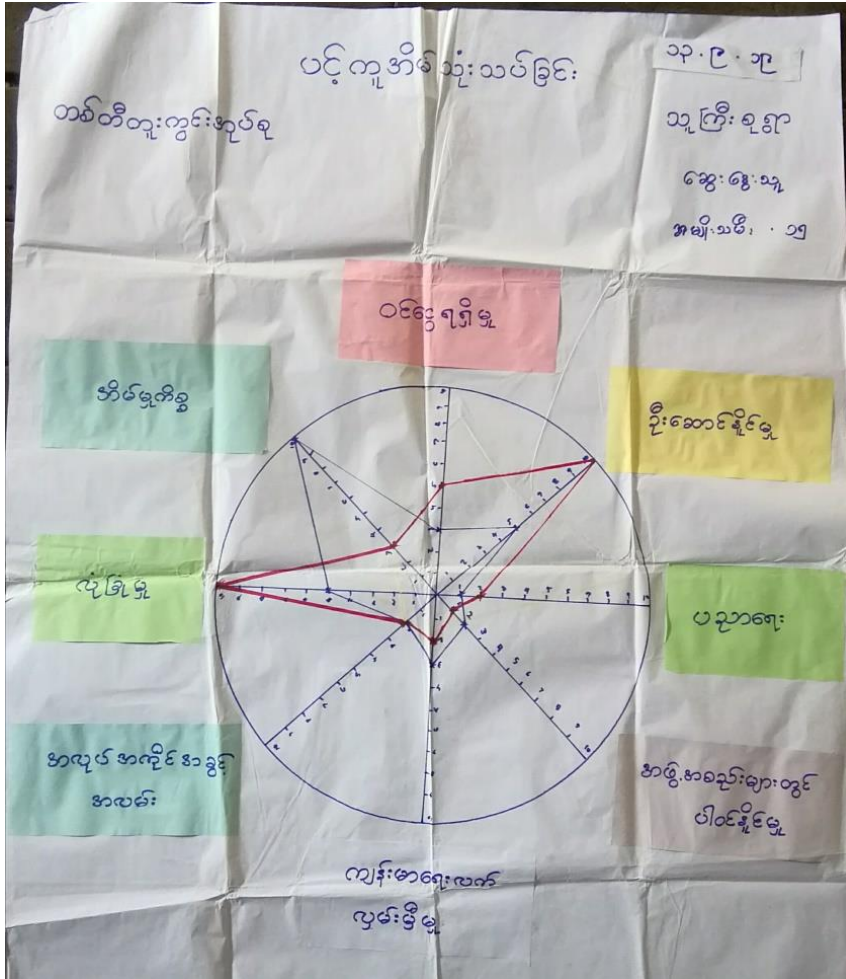 ပင့်ကူအိမ်သုံးသပ်ခြင်း
၁၃.၉.၁၉
တစ်တီတူးကွင်းအုပ်စု
သူကြီးစုရွာ
ဆွေးနွေးသူ
အမျိုးသမီး . ၁၅
ဝင်ငွေရရှိမှု
အိမ်မှုကိစ္စ
ဦးဆောင်နိုင်မှု
လုံခြုံမှု
ပညာရေး
အလုပ်အကိုင်အခွင့်
အလမ်း
အဖွဲ့အစည်းများတွင်
ပါဝင်နိုင်မှု
ကျန်းမာရေးလက်
လှမ်းမှီမှု